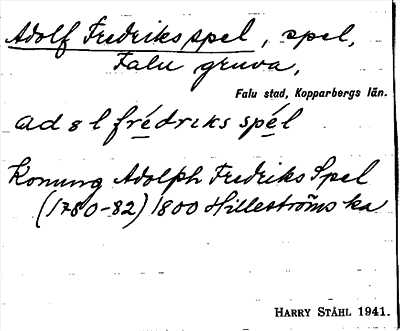 Adolf Fredriks spel, spel,
Falu gruva,
Falu stad, Kopparbergs län.
ad ɜ l frédrɩks spél
Konung Adolph Fredriks Spel
(1780-82) 1800 Hilleströms ka
HARRY STÅHL 1941.